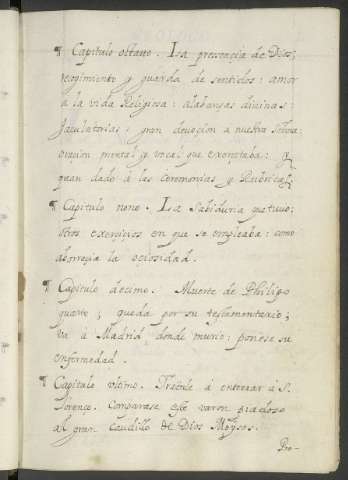 ¶ Capitulo octavo. La presencia de Dios;
recogimiento y guarda de sentidos: amor
a la vida Religiosa: alabanzas divinas:
Jaculatorias: gran devocion a nuestra Señora:
oracion mental y vocal que exercitaba: y
quan dado á las ceremonias y Rubricas.
¶ Capitulo nono. La Sabiduria que tuvo:
otros exercicios en que se empleaba: como
aborrecia la ociosidad.
¶ Capitulo decimo. Muerte de Philipo
quarto; queda por su testamentario;
va á Madrid, donde murio: ponese su
enfermedad.
¶ Capitulo vltimo. Traenle á enterrar á S.
Lorenço. Comparase este varon piadoso
al gran Caudillo de Dios Moyses.
Pro-